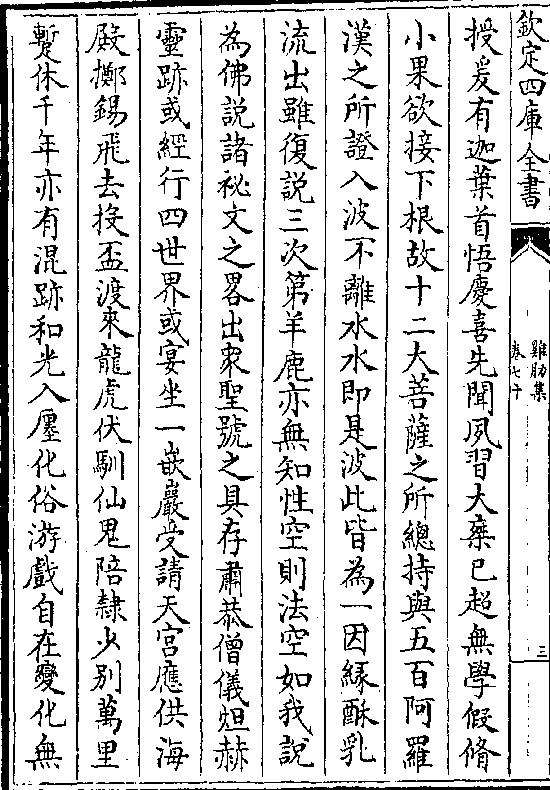 欽定四庫全書
雞肋集
卷七十
三
授爰有迦葉首悟慶喜先聞夙習大乗已超無學假脩
小果欲接下根故十二大菩薩之所總持與五百阿羅
漢之所證入波不離水水即是波此皆為一因緣酥乳
流出雖復説三次第羊鹿亦無知性空則法空如我説
為佛説諸祕文之畧出衆聖號之具存肅恭僧儀烜赫
靈跡或經行四世界或宴坐一嵌巖受請天宮應供海
殿擲錫飛去投盃渡來龍虎伏馴仙鬼陪隸少别萬里
蹔休千年亦有混跡和光入廛化俗游戲自在變化無